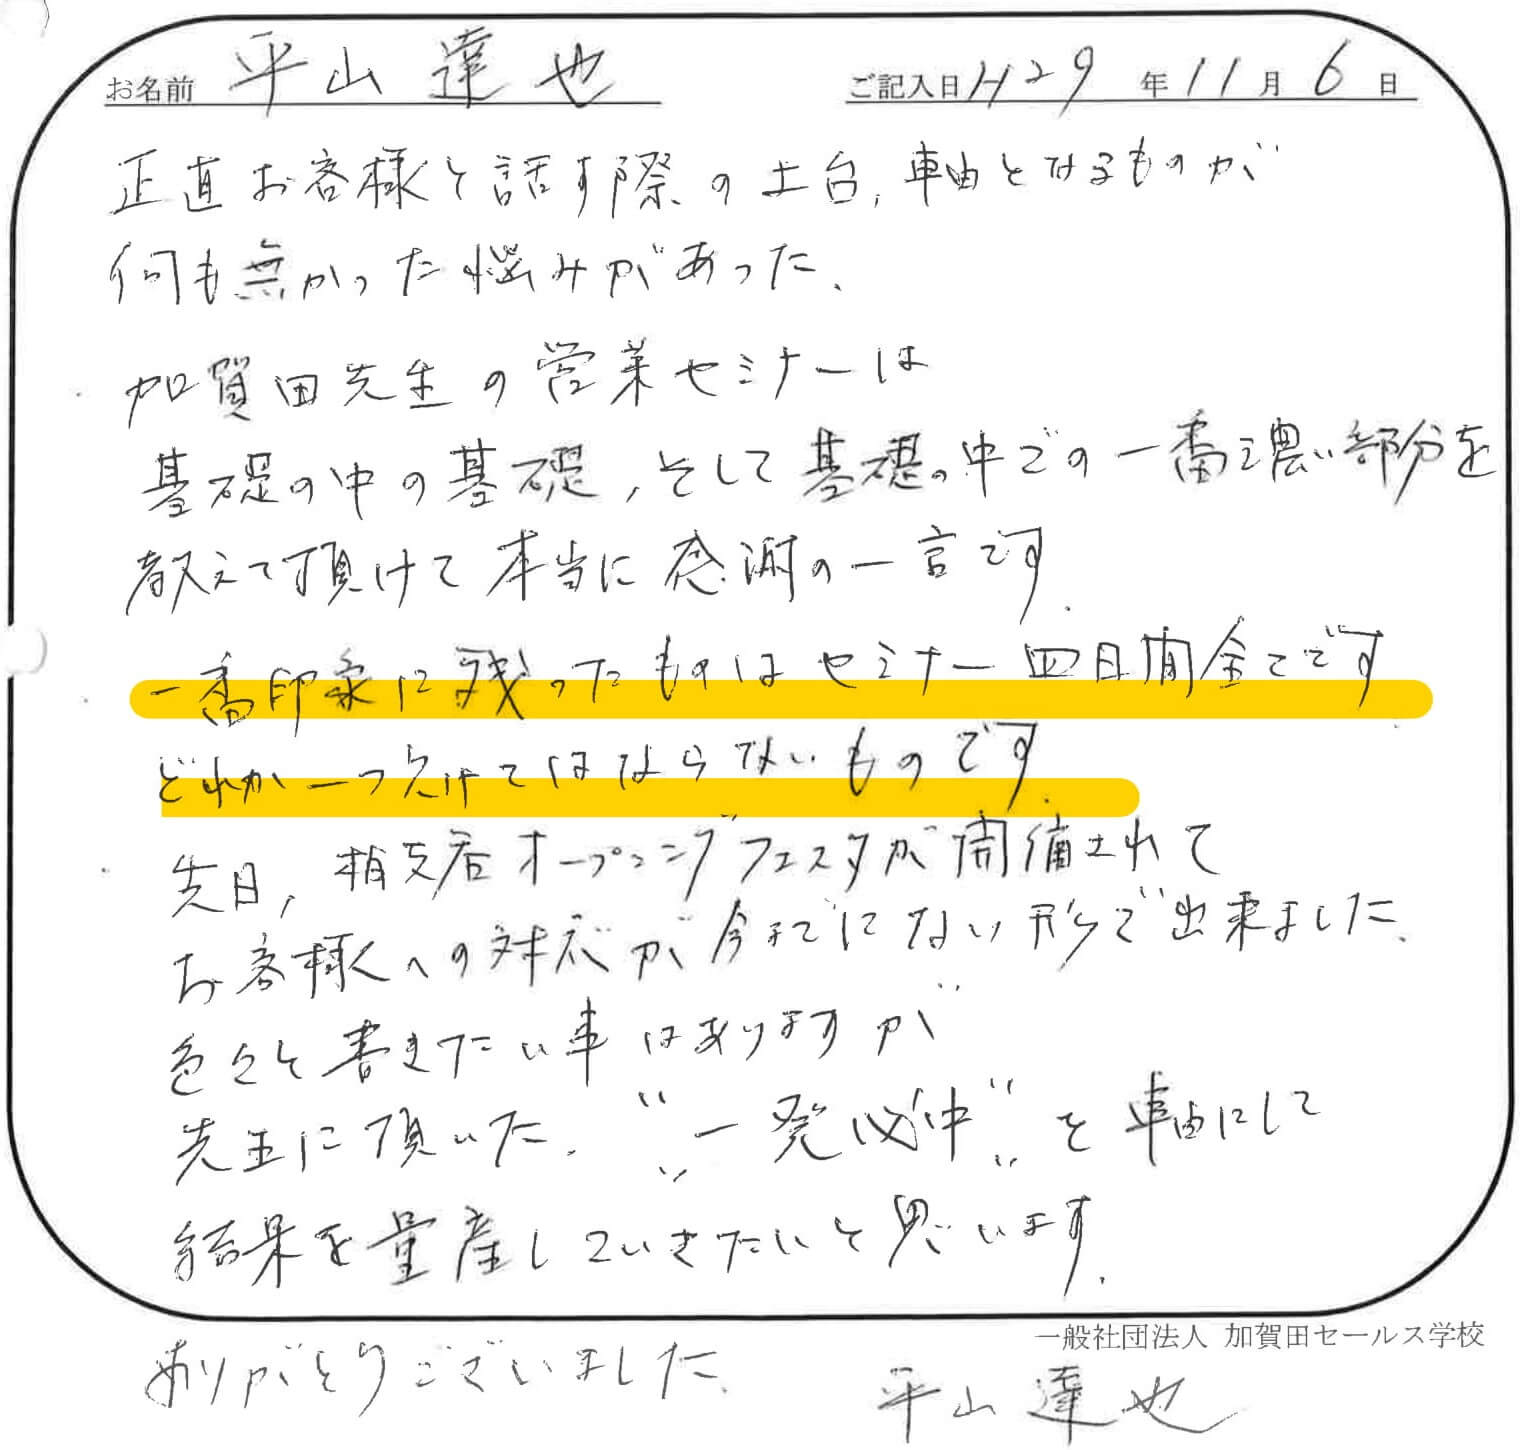 お名前 平山達也 ご記入日 H29年11月6日
正直お客様と話す際の土台、軸となるものが
何も無かった悩みがあった、
加賀田先生の営業セミナーは
基礎の中の基礎、そして基礎の中での一番濃い部分を
教えて頂けて本当に感謝の一言です.
一番印象に残ったものはセミナー四日間全てです
どれか一つ欠けてはならないものです.
先日、支店オープニングフェスタが開催されて
お客様への対応が今までにない形で出来ました、
色々と書きたい事はありますが
先生に頂いた、“一発必中”を軸にして
結果を量産していきたいと思います.
一般社団法人 加賀田セールス学校
ありがとうございました.
平山達也